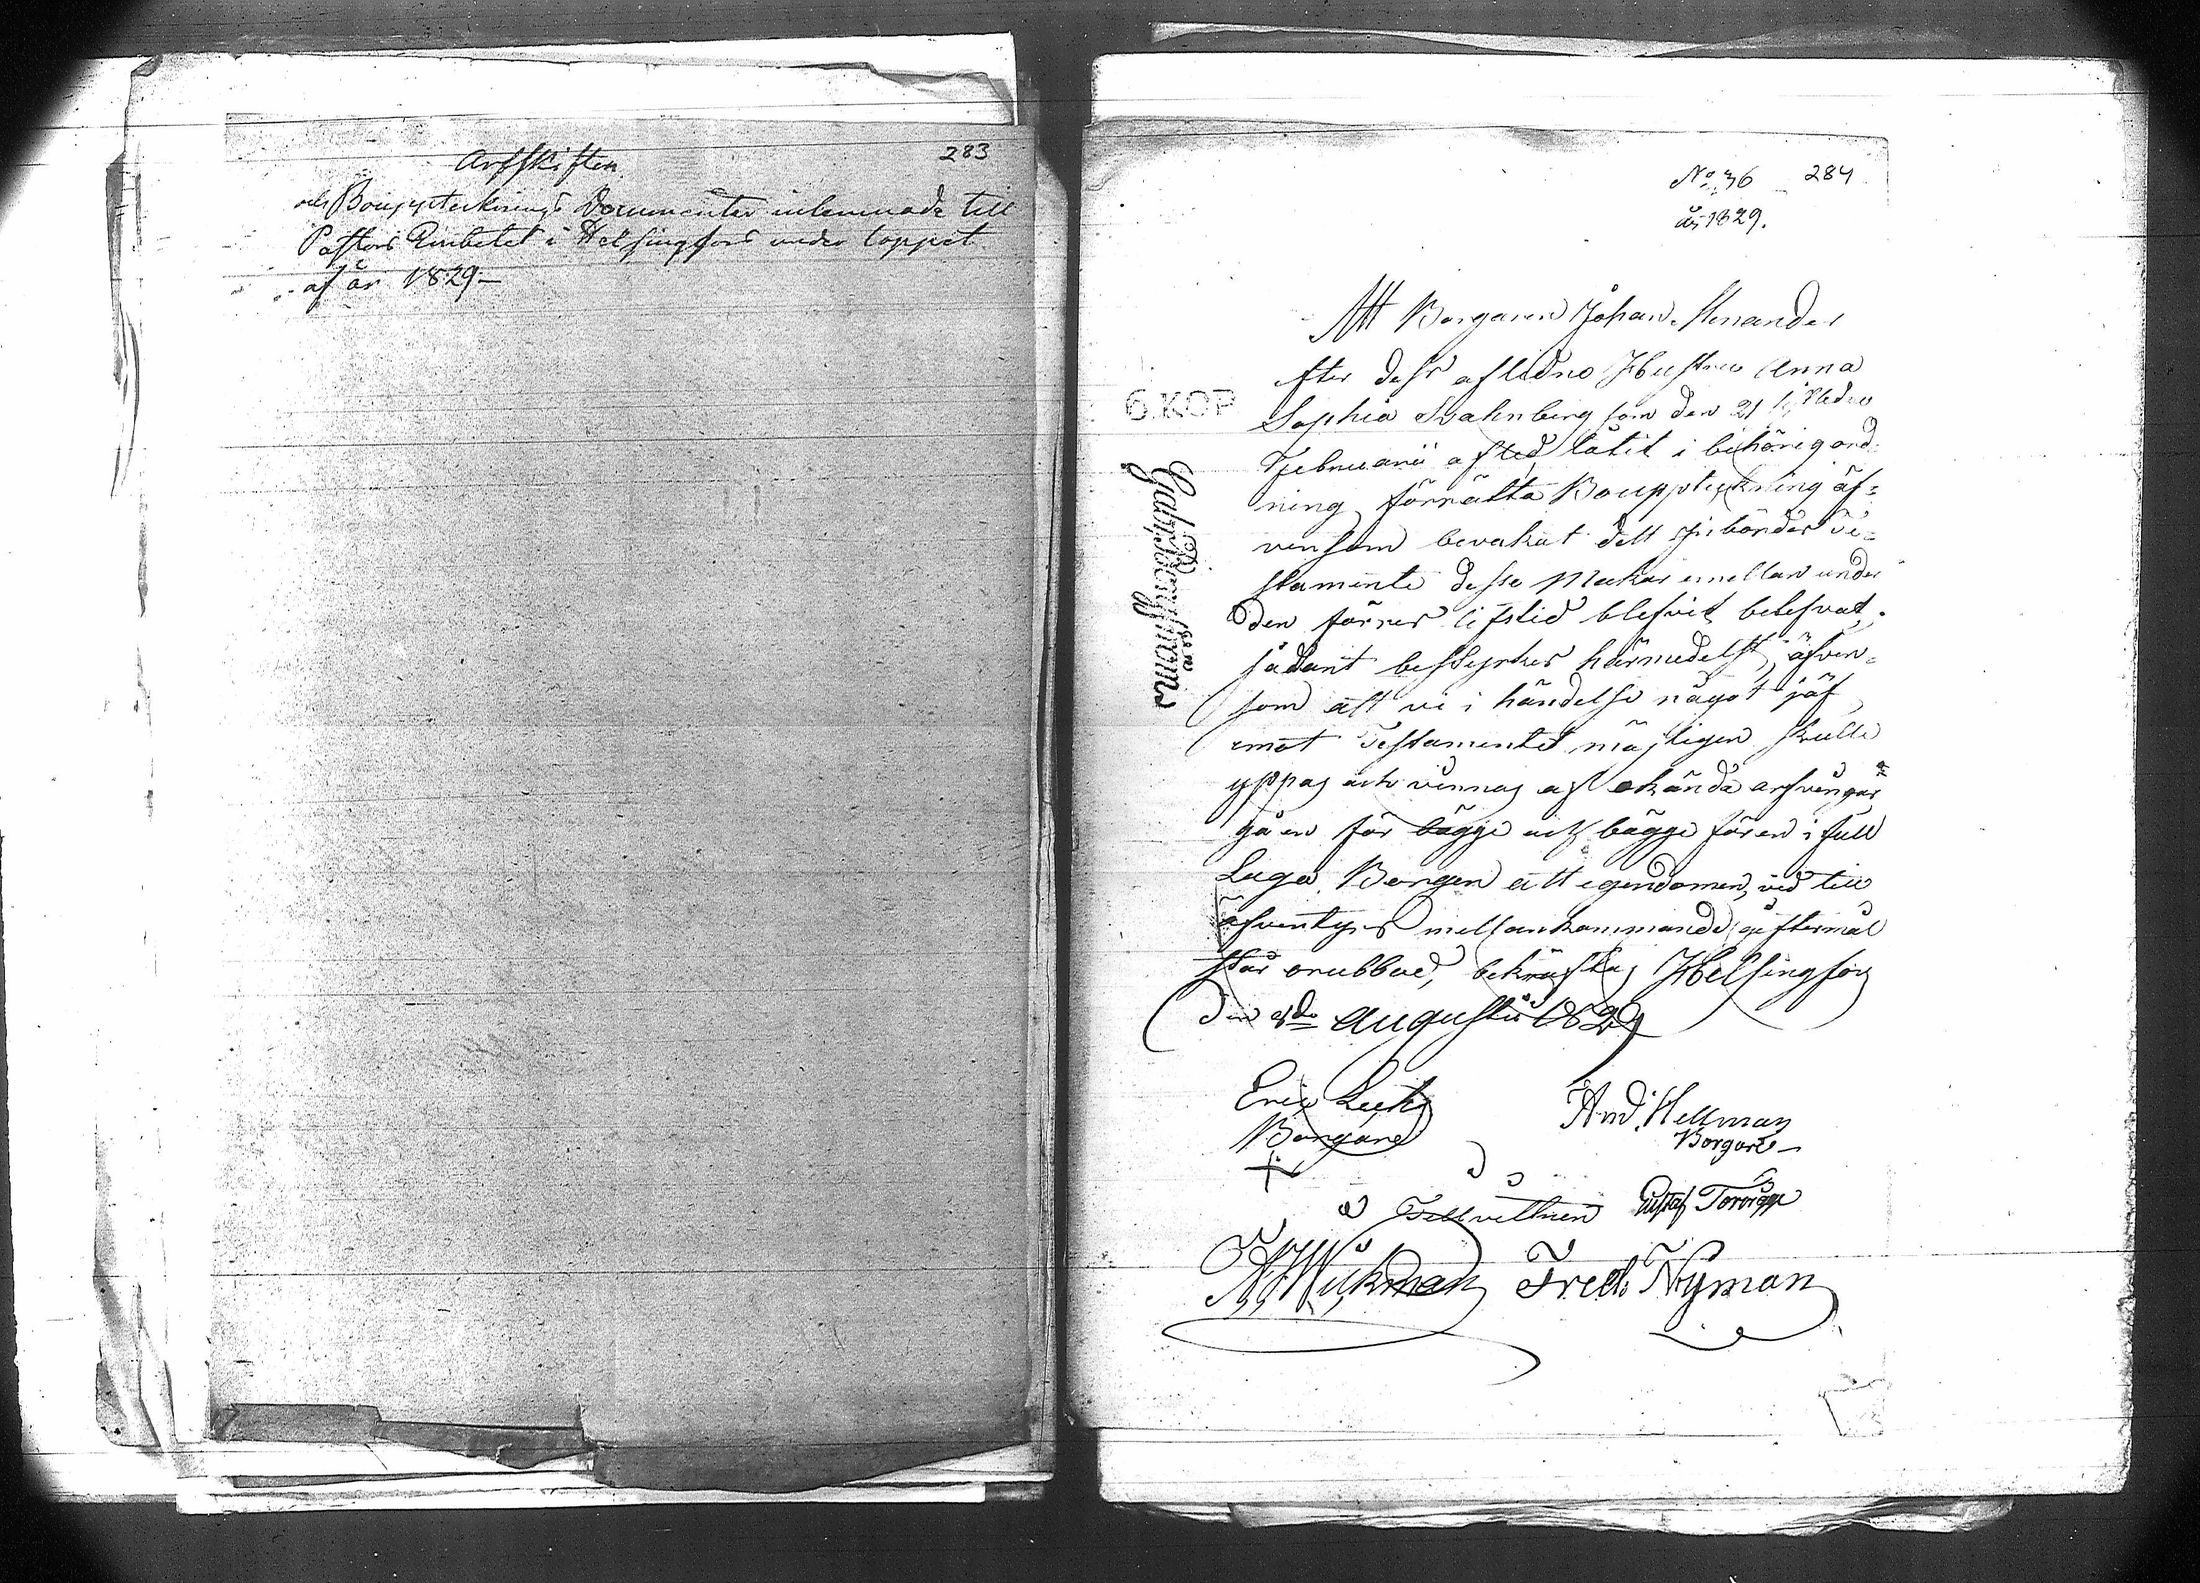 283
Arfskiften
och Boupptecknings Documenter inlemnade till
Pastors Embetet i Helsingfors under loppet
af år 1829 –
No 36 284
år 1829.
Att Borgaren Johan Menander
efter dess aflidno Hustru Anna
Sophia den 21 sistledne
Februarii afled låtit i behörig ord-
ning förrätta Bouppteckning äf-
vensom bevakat dett inbördes Te-
stamente desse Makar emellan under
den förres lifstid blefvit
sådant bestyrkes härmedelst, äfven-
som att vi i händelse något jäf
emot Testamentet möjligen skulle
yppas och vinnas af okända arfvingar
gå en för bägge och bägge för en i full
Laga Borgen att egendomen, vid till
äfventyrs mellankommande giftermål
står orubbad, bekräftas Helsingfors
den 3die Augusti 1829
Eric And. Hellman
Borgare Borgare –
Tillvittnen Gustaf
Wickman Fredr Nyman
6.KOP